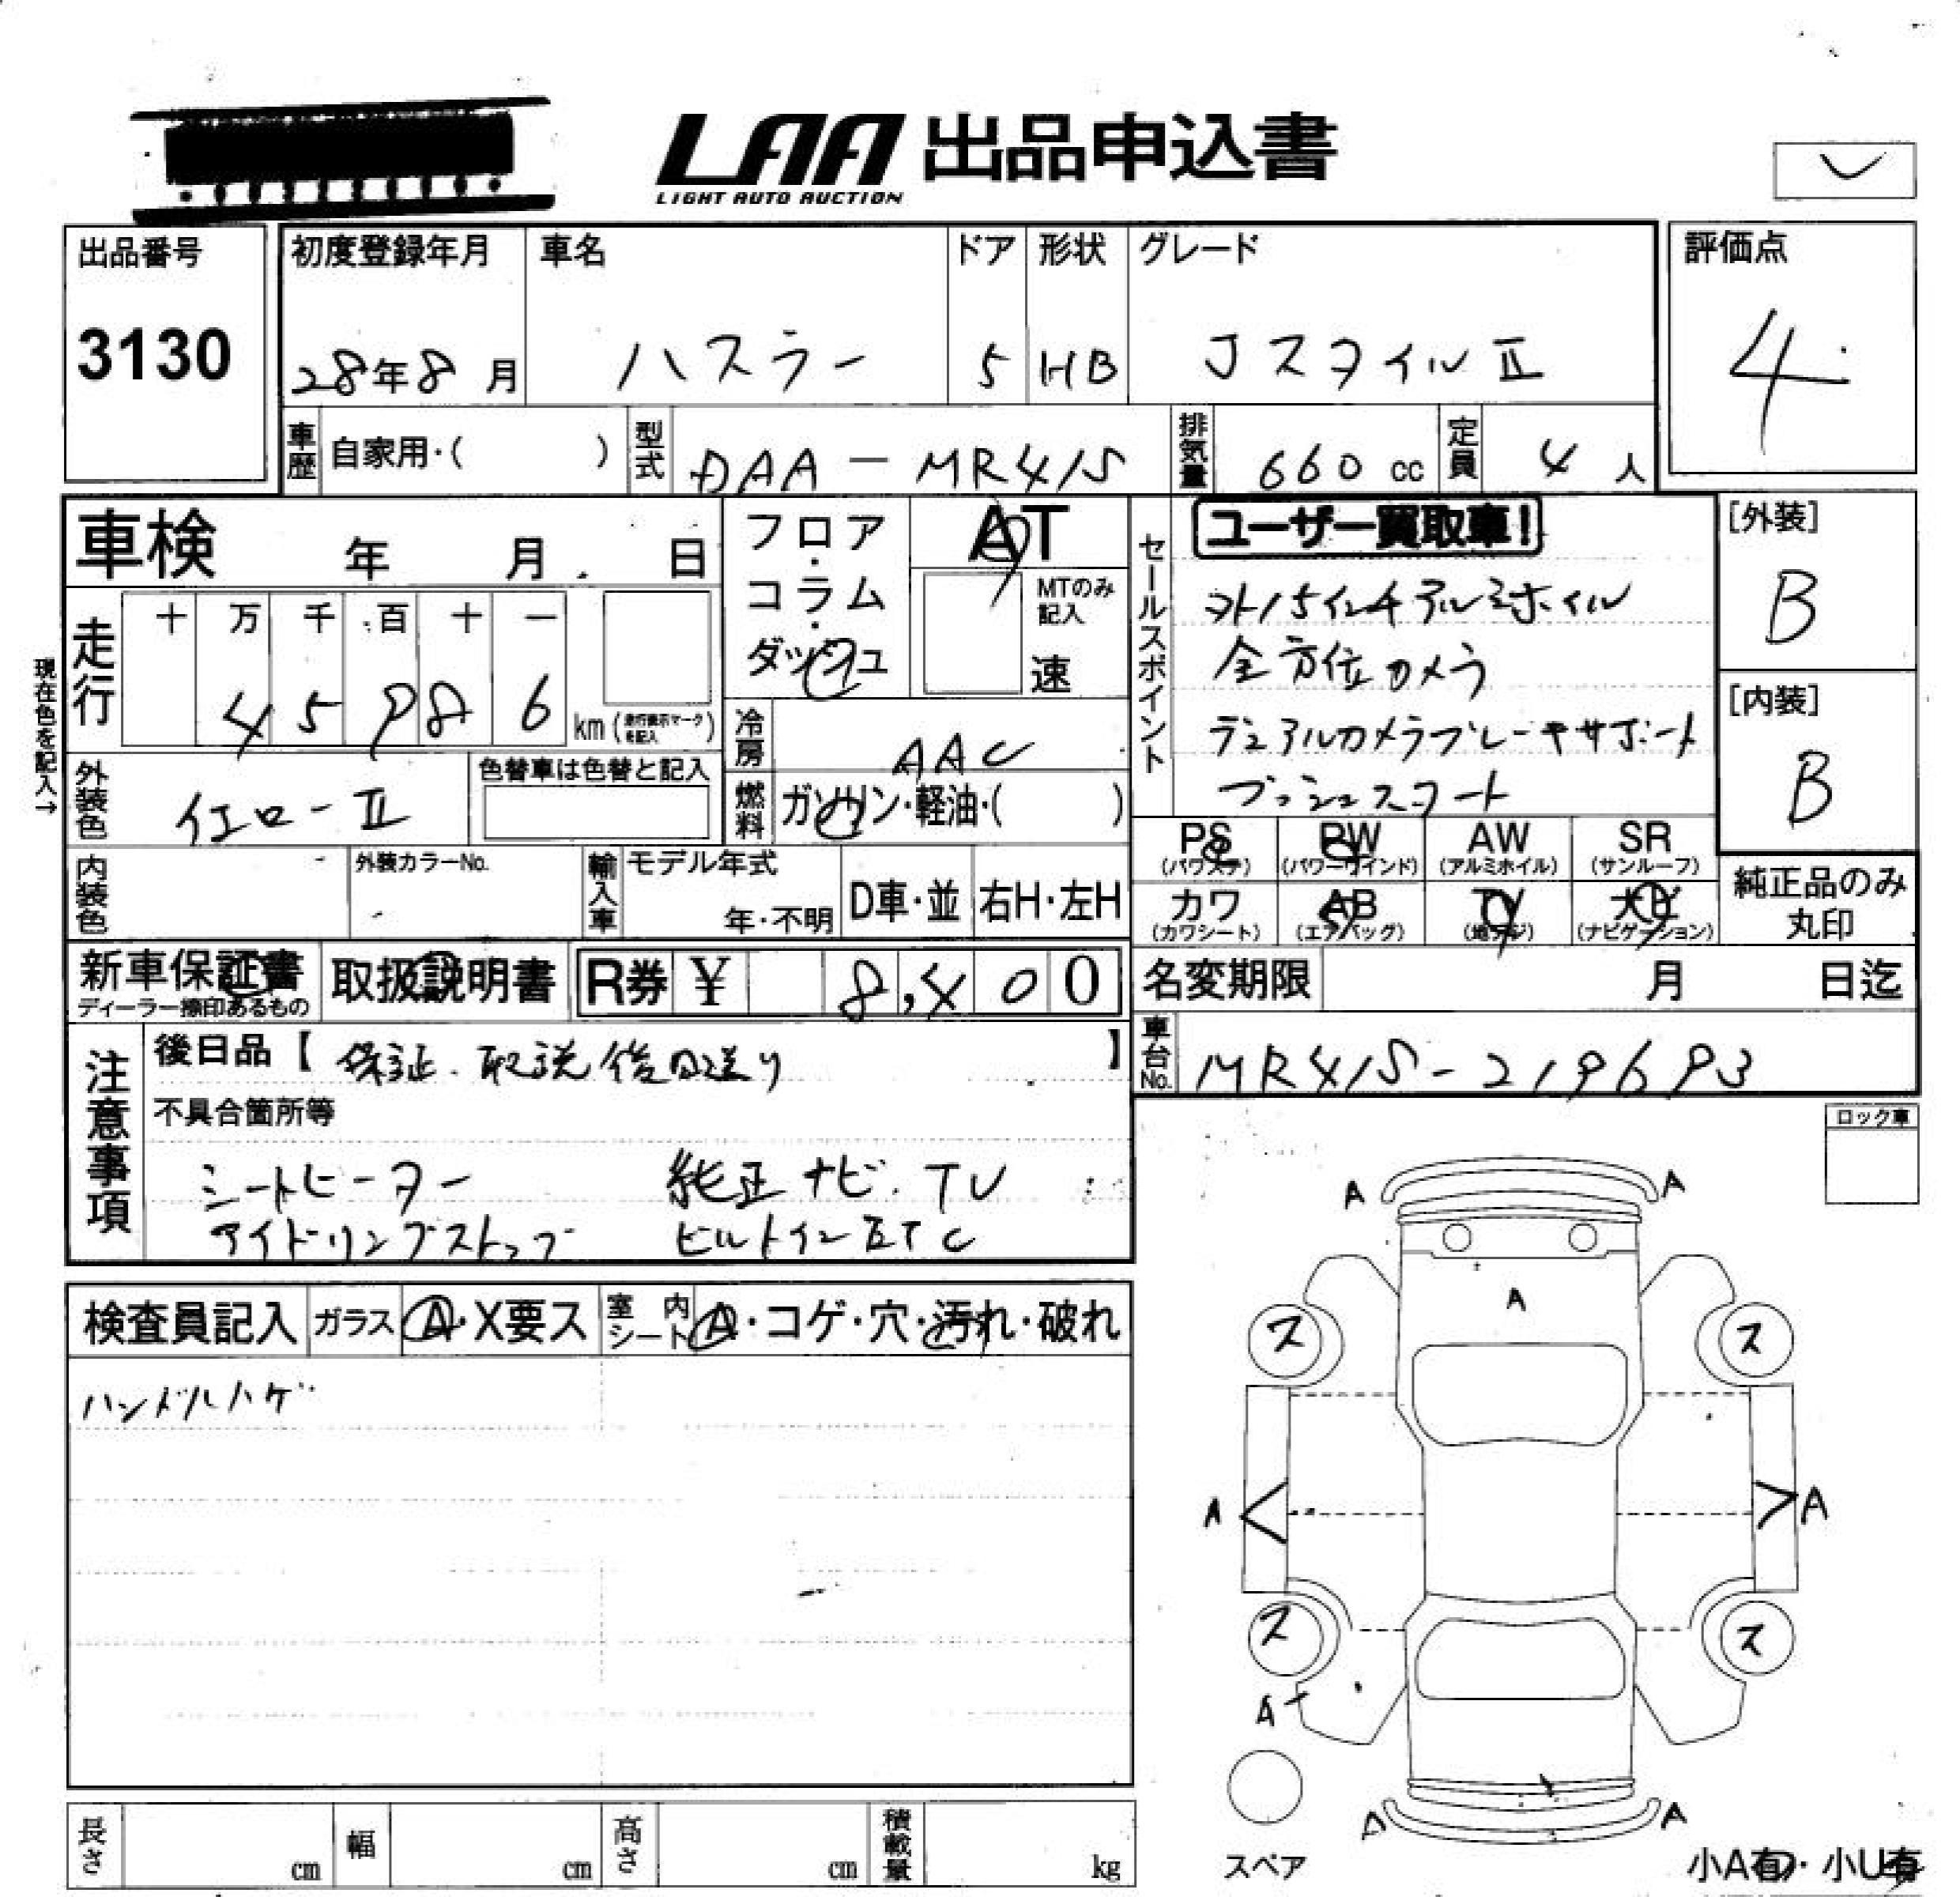 LAA 出品申込書
LIGHT AUTO AUCTION
出品番号 初度登録年月 車名 ドア 形状 グレード 評価点
3130 28年8月 ハスラー 5 HB JスタイルⅡ 4
車歴 自家用・( ) 型式 DAA-MR41S 排気量 660 cc 定員 4 人
車検 年 月 日 フロア・コラム・ダッシュ AT
MTのみ記入 速
セールスポイント ユーザー買取車!
外15インチアルミホイル
全方位カメラ
デュアルカメラブレーキサポート
プッシュスタート
[外装] B
[内装] B
現在色を記入→
走行 十 万 千 百 十 一
4 5 9 8 6 km (走行表示マークを記入)
冷房 AAC
外装色 イエローⅡ 色替車は色替と記入
燃料 ガソリン・軽油・( )
PS (パワステ) PW (パワーウインド) AW (アルミホイル) SR (サンルーフ)
カワ (カワシート) AB (エアバッグ) TV (地デジ) ナビ (ナビゲーション)
純正品のみ丸印
内装色 外装カラーNo. 輸入車 モデル年式 年・不明 D車・並 右H・左H
新車保証書 ディーラー捺印あるもの 取扱説明書 R券 ¥ 8,400
名変期限 月 日迄
車台No. MR41S-219693
注意事項 後日品【 保証.取説後日送り 】
不具合箇所等
シートヒーター 純正ナビ.TV
アイドリングストップ ビルトインETC
ロック車
検査員記入 ガラス A・X要ス 室内シート A・コゲ・穴・汚れ・破れ
ハンドルハゲ
A A
A
ス ス
A A
ス ス
A
A A
スペア
小A有・小U有
長さ cm 幅 cm 高さ cm 積載量 kg